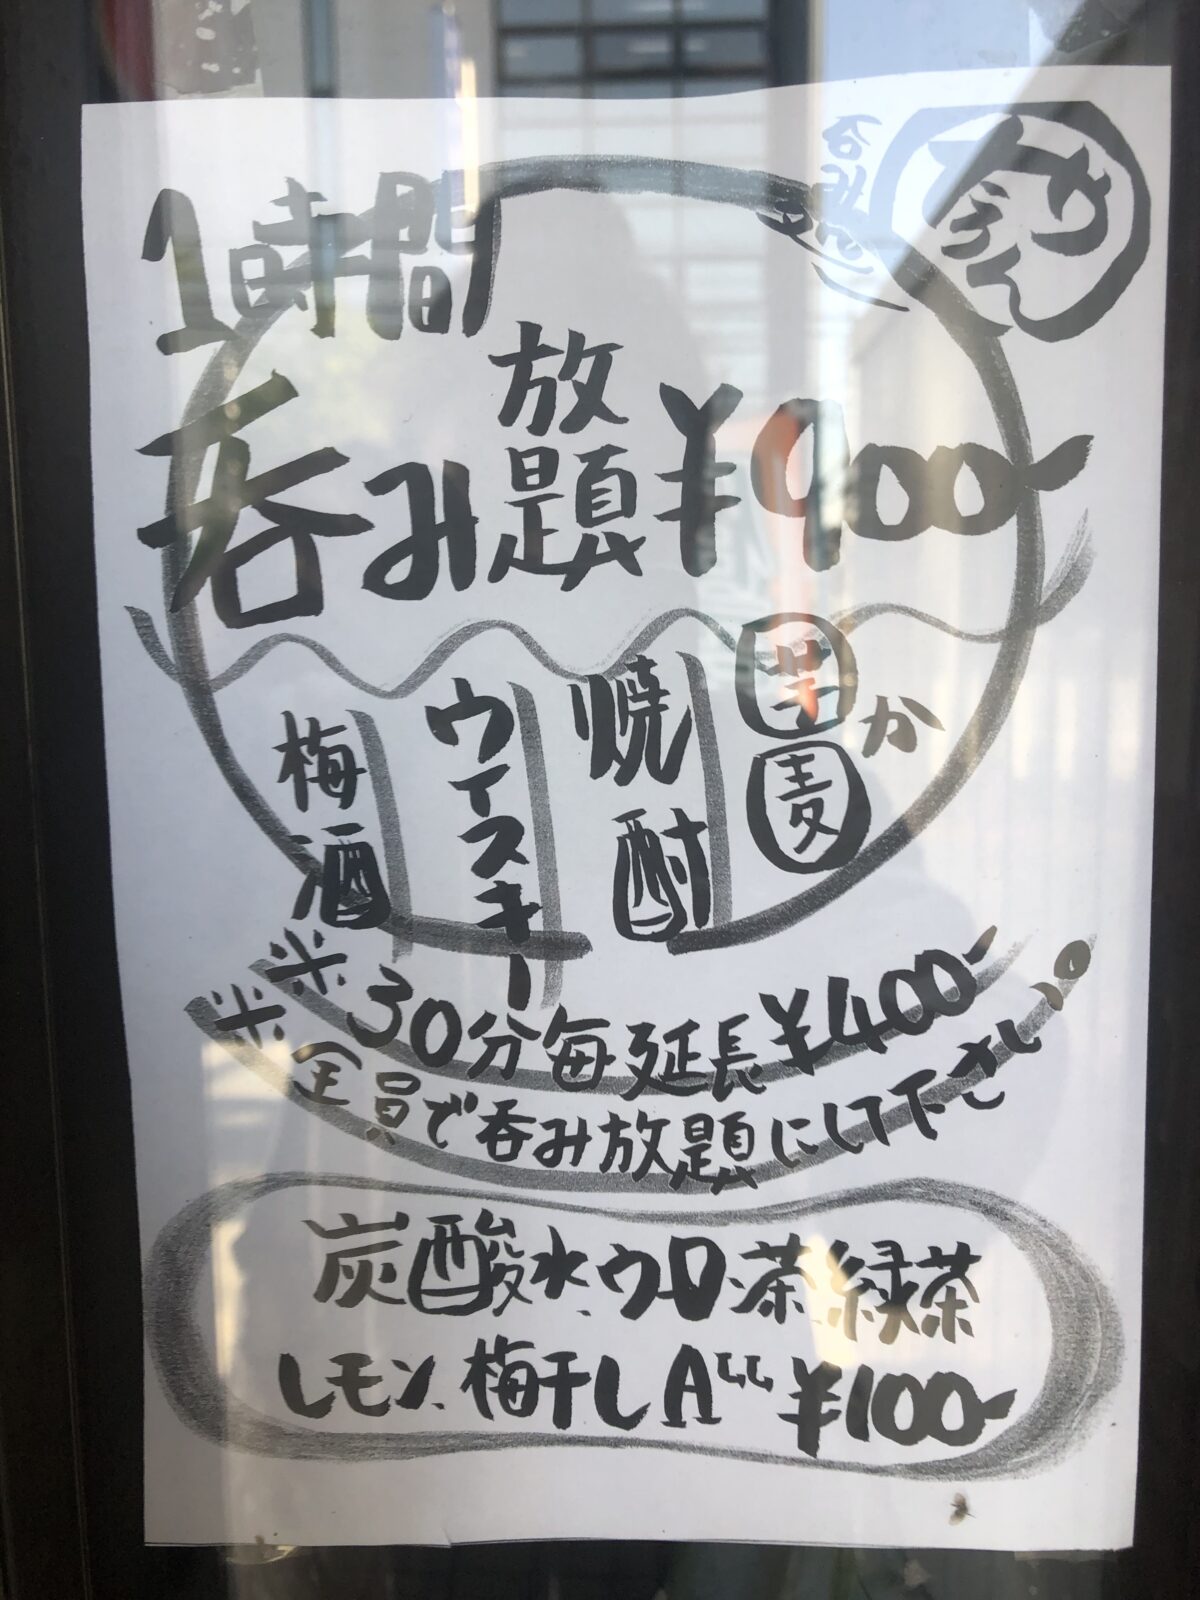 1時間
呑み放題¥900-
梅酒
ウイスキー
焼酎
芋
麦
か
※30分毎延長¥400-
※全員で呑み放題にして下さい。
炭酸水、ウーロン茶、緑茶
レモン、梅干しALL¥100-